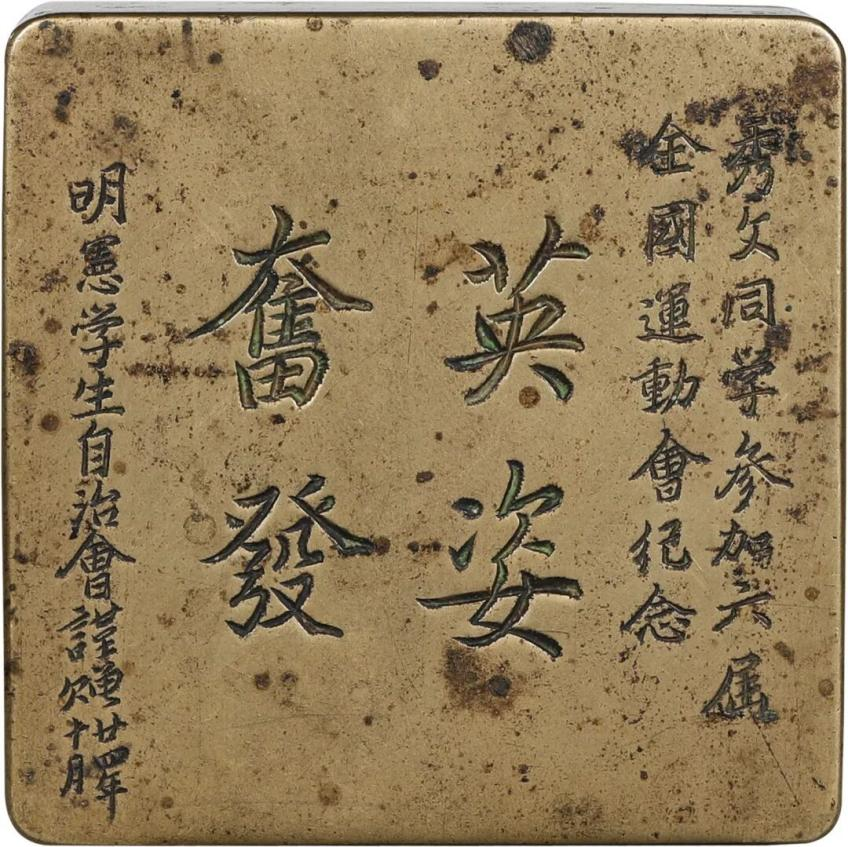 秀文同学参加六届
全國運動會纪念
英姿
奮發
明憲学生自治會謹贈
廿四年
十月